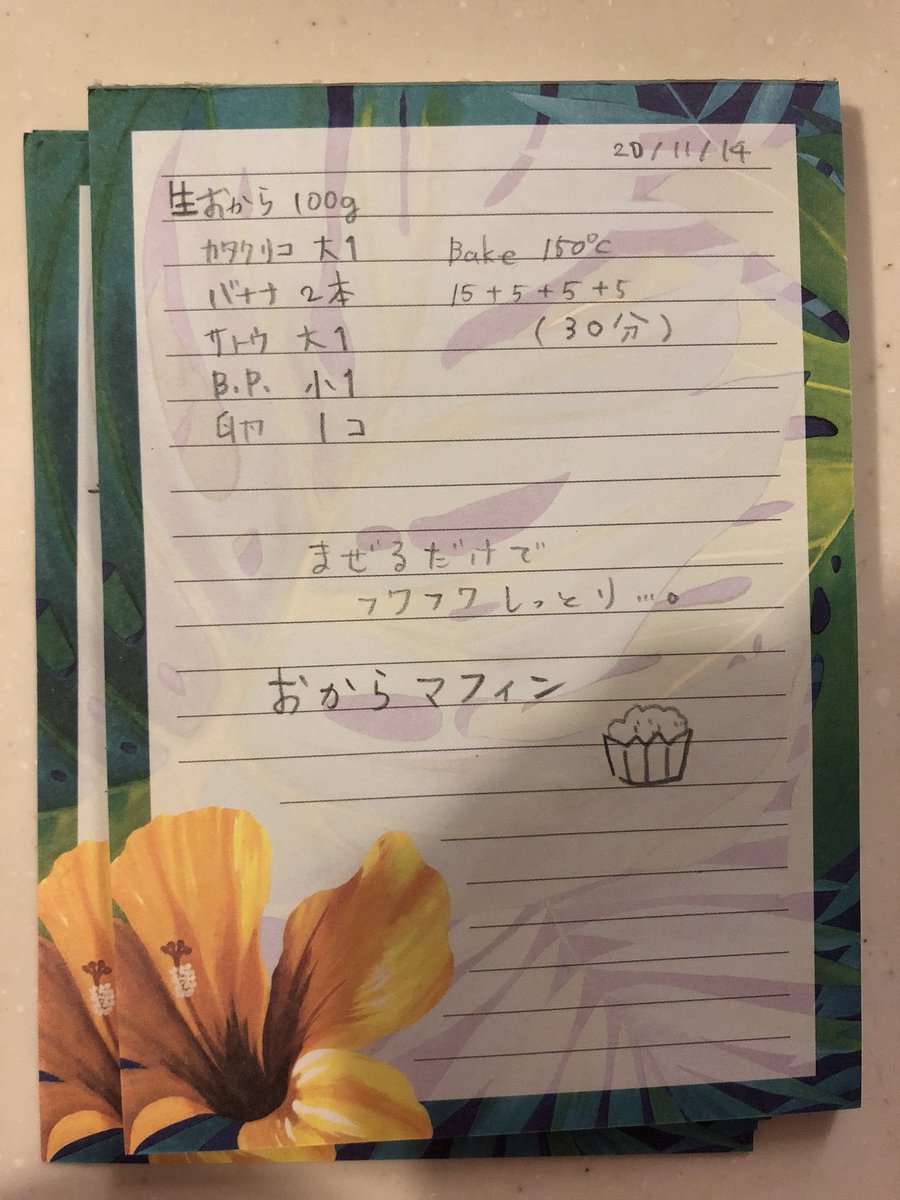 20/11/14
生おから 100g
カタクリコ 大1
バナナ 2本
サトウ 大1
B.P. 小1
卵 1コ
Bake 150℃
15+5+5+5
(30分)
まぜるだけで
フワフワしっとり…。
おからマフィン